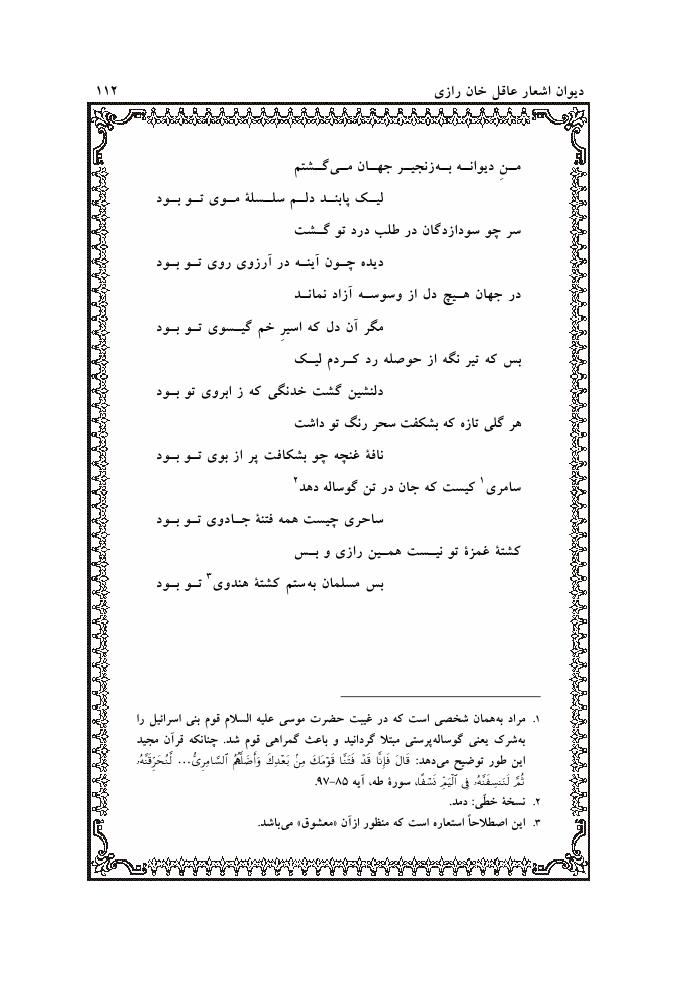 دیوان اشعار عاقل خان رازی ۱۱۲
منِ دیوانه به‌زنجیر جهان می‌گشتم
لیک پابند دلم سلسلهٔ موی تو بود
سر چو سودازدگان در طلب درد تو گشت
دیده چون آینه در آرزوی روی تو بود
در جهان هیچ دل از وسوسه آزاد نماند
مگر آن دل که اسیرِ خم گیسوی تو بود
بس که تیر نگه از حوصله رد کردم لیک
دلنشین گشت خدنگی که ز ابروی تو بود
هر گلی تازه که بشکفت سحر رنگ تو داشت
نافهٔ غنچه چو بشکافت پر از بوی تو بود
سامری۱ کیست که جان در تن گوساله دهد۲
ساحری چیست همه فتنهٔ جادوی تو بود
کشتهٔ غمزهٔ تو نیست همین رازی و بس
بس مسلمان به‌ستم کشتهٔ هندوی۳ تو بود
۱. مراد به‌همان شخصی است که در غیبت حضرت موسی علیه السلام قوم بنی اسرائیل را
به‌شرک یعنی گوساله‌پرستی مبتلا گردانید و باعث گمراهی قوم شد. چنانکه قرآن مجید
این طور توضیح می‌دهد: قَالَ فَإِنَّا قَدْ فَتَنَّا قَوْمَكَ مِنۢ بَعْدِكَ وَأَضَلَّهُمُ ٱلسَّامِرِىُّ... لَّنُحَرِّقَنَّهُۥ
ثُمَّ لَنَنسِفَنَّهُۥ فِى ٱلْيَمِّ نَسْفًا، سورهٔ طه، آیه ۸۵-۹۷.
۲. نسخهٔ خطّی: دمد.
۳. این اصطلاحاً استعاره است که منظور ازآن «معشوق» می‌باشد.